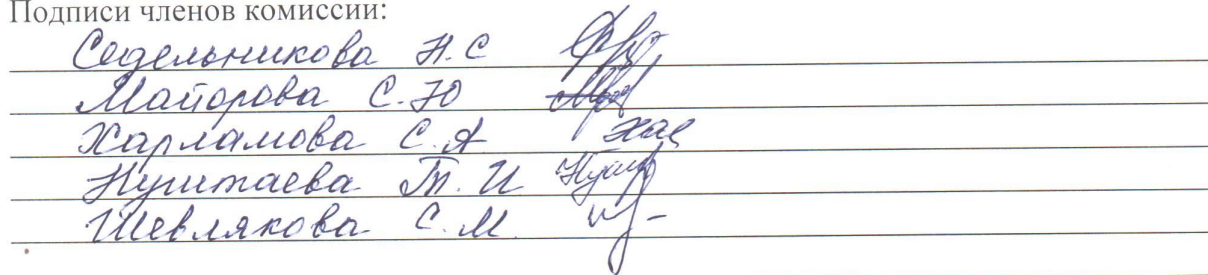 Подписи членов комиссии:
Седельникова Н.С
Майорова С.Ю
Харламова С.А
Нуштаева Т.И
Шевлякова С.М.